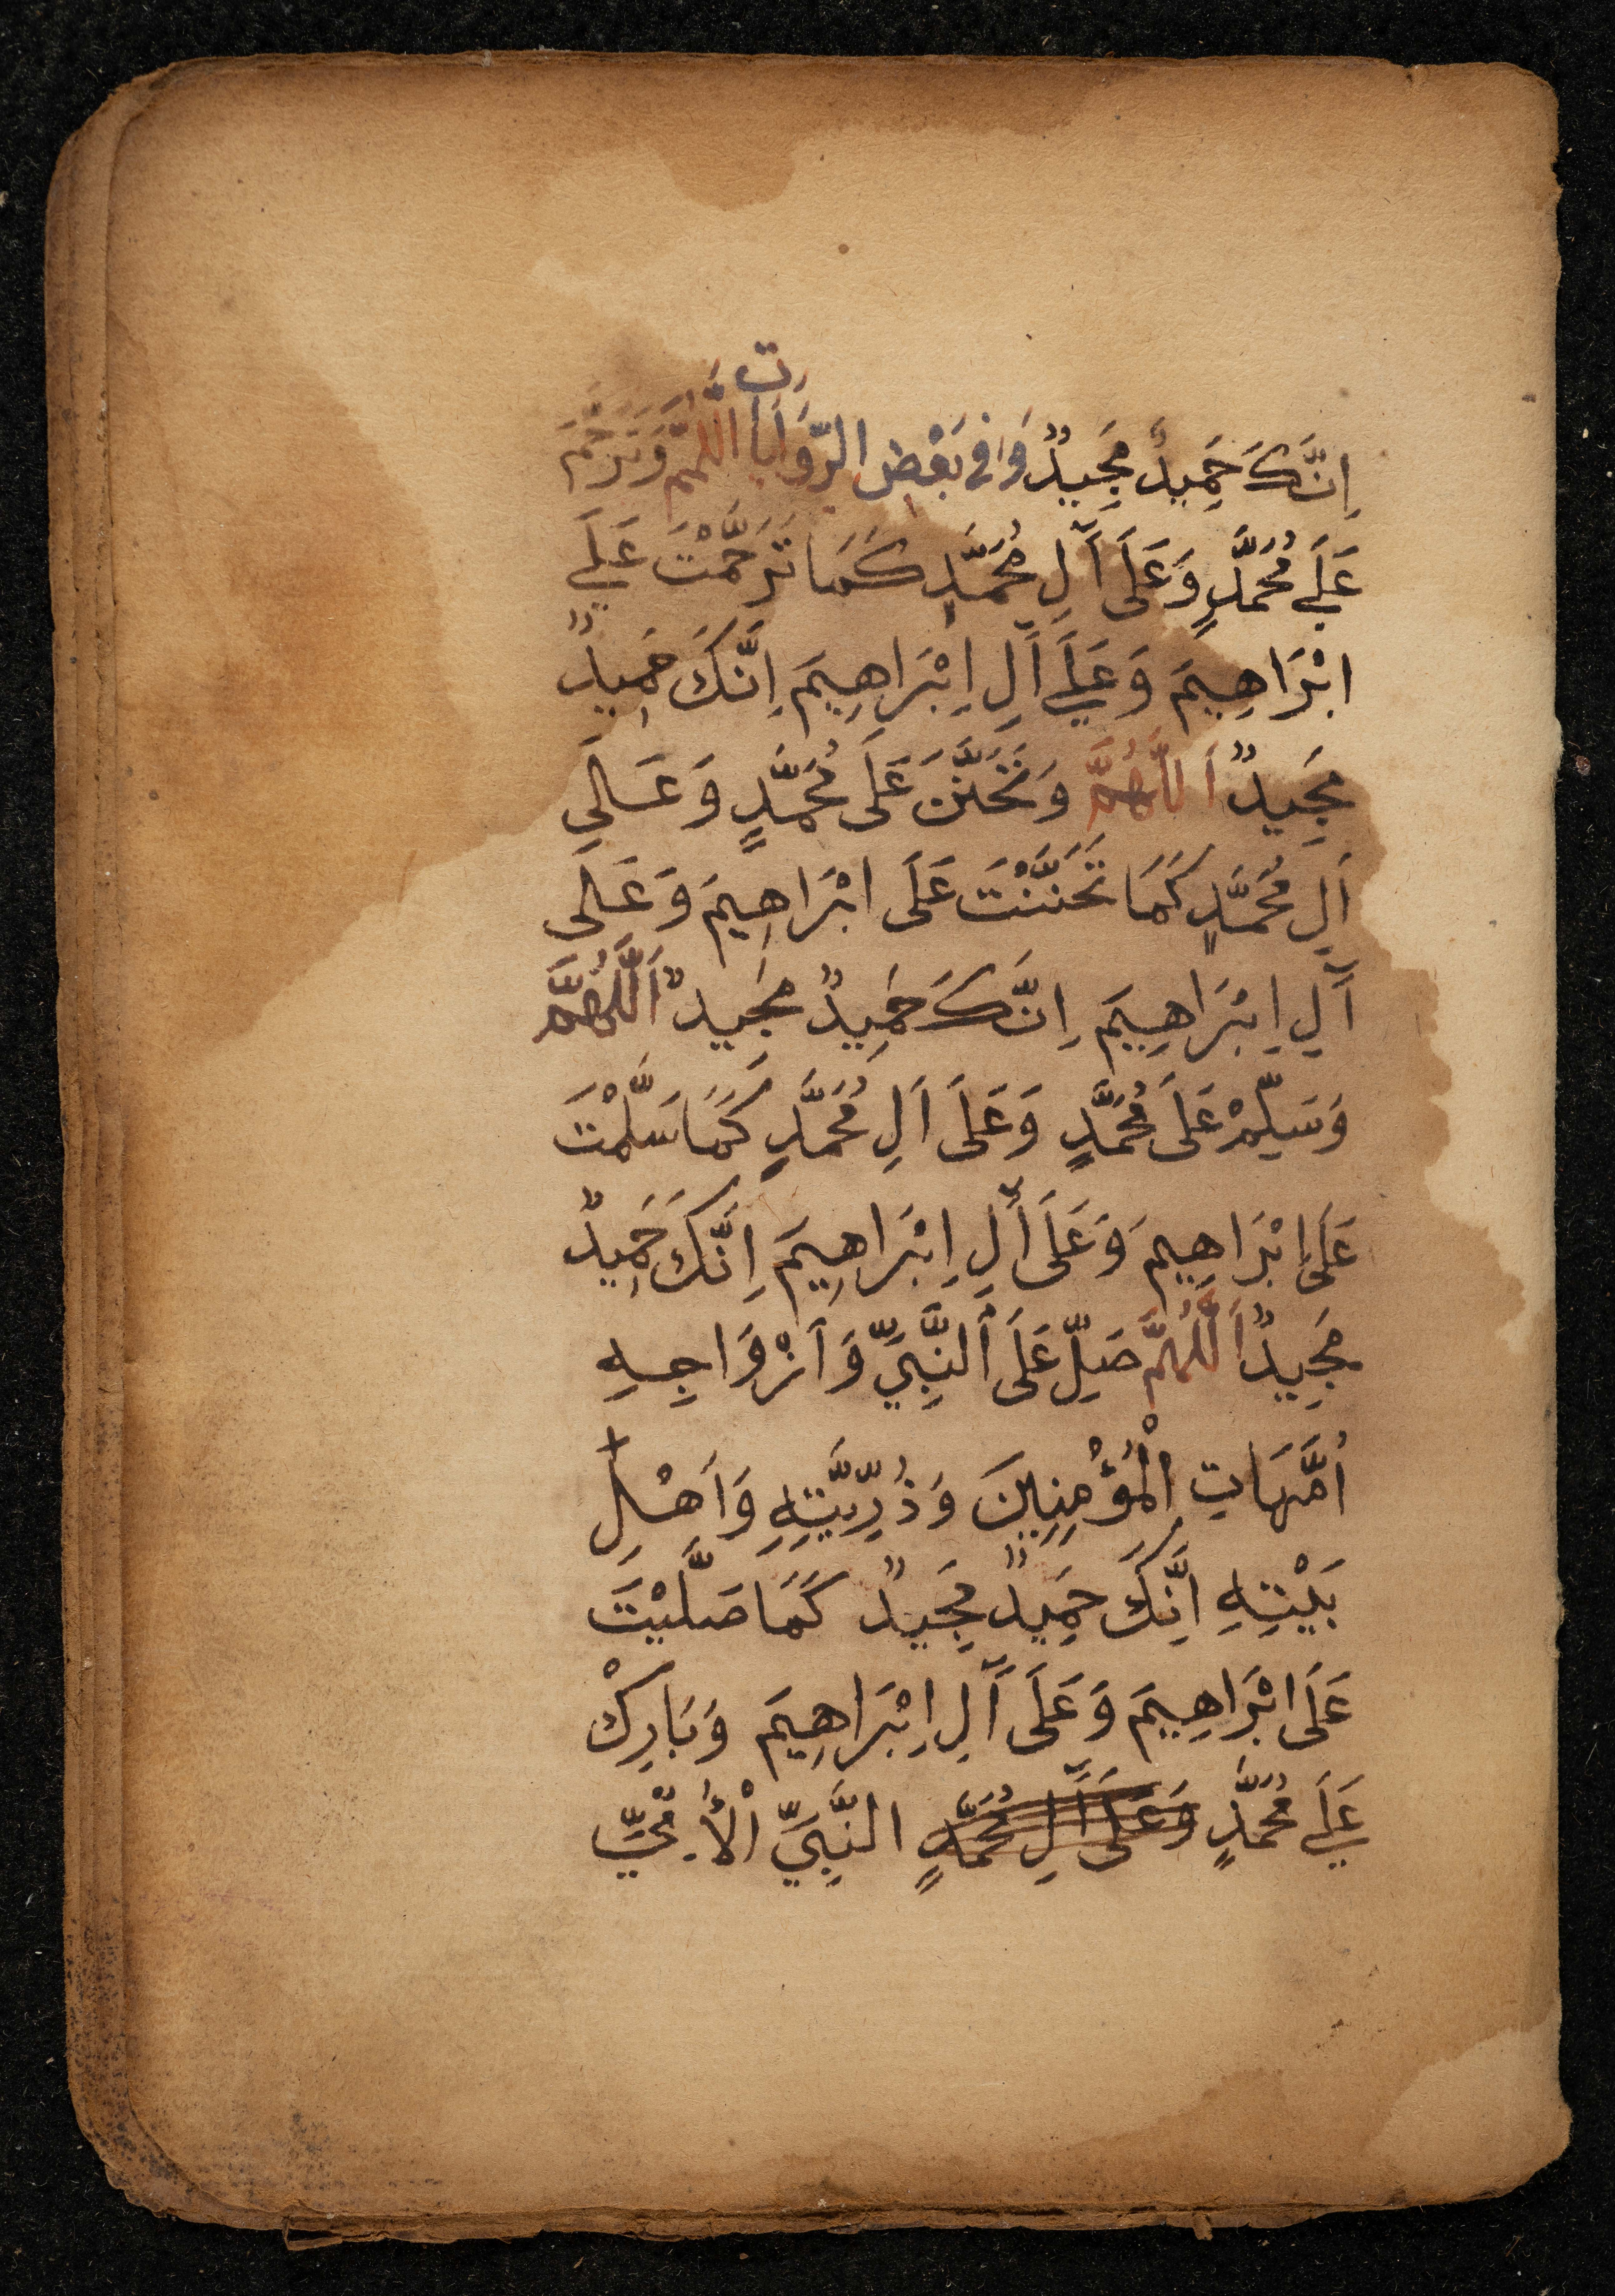 اِنَّكَ حَمِيدٌ مَجِيدٌ وَافِي بَعْضِ الرِّوَايَاتِ اَللّٰهُمَّ وَتَرَحَّمْ
عَلَي مُحَمَّدٍ وَعَلَى آلِ مُحَمَّدٍ كَمَا تَرَحَّمْتَ عَلَي
ابْرَاهِيمَ وَعَلَي آلِ اِبْرَاهِيمَ اِنَّكَ حَمِيدٌ
مَجِيدٌ اَللَّهُمَّ وَتَحَنَّنَ عَلَى مُحَمَّدٍ وَعَالَي
اَلِ مُحَمَّدٍ كَمَا تَحَنَّنْتَ عَلَى ابْرَاهِيمَ وَعَلَى
آلِ اِبْرَاهِيمَ اِنَّكَ حَمِيدٌ مَجِيدٌ اَللَّهُمَّ
وَسَلِّمْ عَلَى مُحَمَّدٍ وَعَلَى اَلِ مُحَمَّدٍ كَمَا سَلَّمْتَ
عَلَى اِبْرَاهِيمَ وَعَلَى آلِ اِبْرَاهِيمَ اِنَّكَ حَمِيدٌ
مَجِيدٌ اَللّٰهُمَّ صَلِّ عَلَى النَّبِيِّ وَاَزْوَاجِهِ
اُمَّهَاتِ الْمُؤْمِنِينَ وَذُرِّيَّتِهِ وَاَهْلِ
بَيْتِهِ اِنَّكَ حَمِيدٌ مَجِيدٌ كَمَا صَلَّيْتَ
عَلَى ابْرَاهِيمَ وَعَلَى آلِ اِبْرَاهِيمَ وَبَارِكْ
عَلَي مُحَمَّدٍ وَعَلَى آلِ مُحَمَّدٍ النَّبِيِّ الْأُمِّيِّ